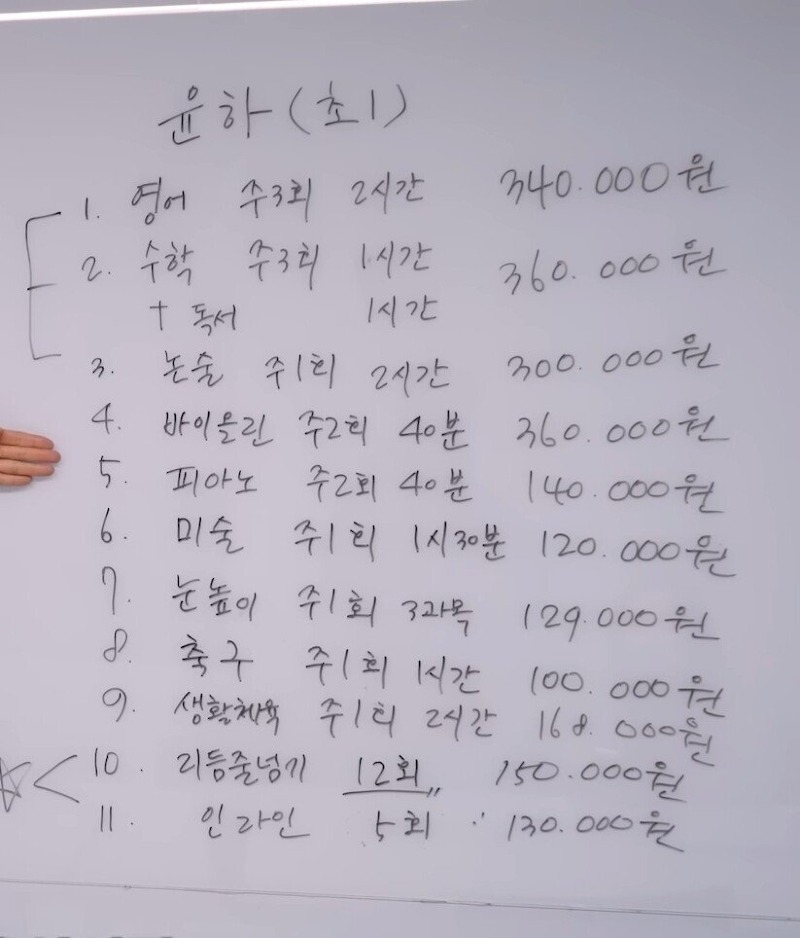 윤하(초1)
1. 영어 주3회 2시간 340.000원
2. 수학 주3회 1시간 360.000원
+ 독서 1시간
3. 논술 주1회 2시간 300.000원
4. 바이올린 주2회 40분 360.000원
5. 피아노 주2회 40분 140.000원
6. 미술 주1회 1시30분 120.000원
7. 눈높이 주1회 3과목 129.000원
8. 축구 주1회 1시간 100.000원
9. 생활체육 주1회 2시간 168.000원
10. 리듬줄넘기 12회 150.000원
11. 인라인 5회 130.000원